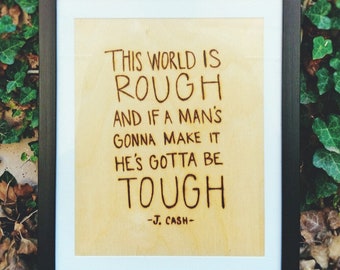 THIS WORLD IS
ROUGH
AND IF A MAN'S
GONNA MAKE IT
HE'S GOTTA BE
TOUGH
-J. CASH-